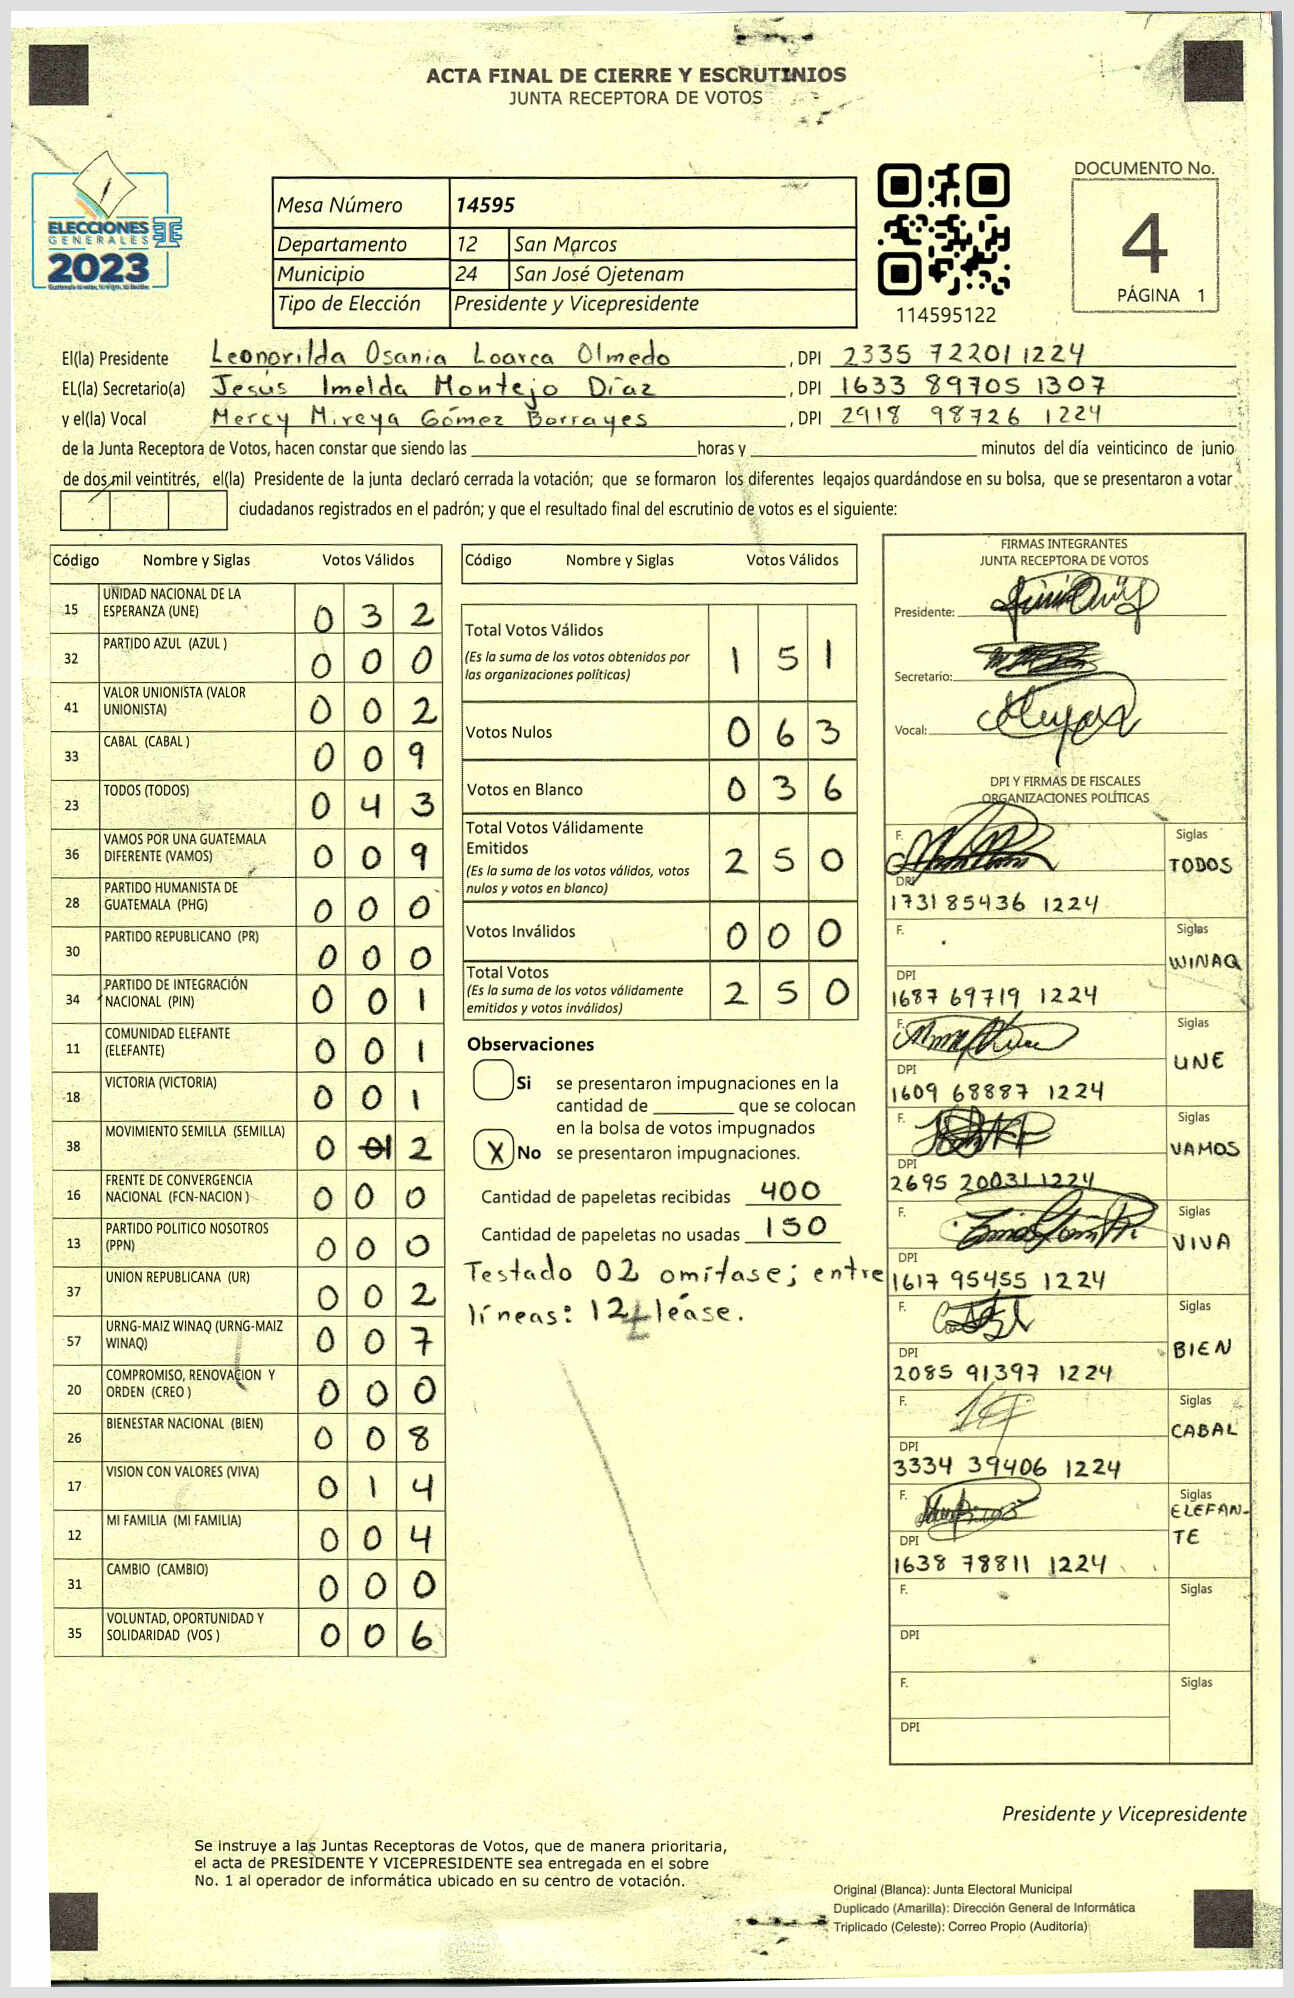 ACTA FINAL DE CIERRE Y ESCRUTINIOS
JUNTA RECEPTORA DE VOTOS
ELECCIONES
GENERALES
2023
Mesa Número 14595
Departamento 12 San Marcos
Municipio 24 San José Ojetenam
Tipo de Elección Presidente y Vicepresidente
114595122
DOCUMENTO No.
4
PÁGINA 1
El(la) Presidente Leonorilda Osania Loarca Olmedo , DPI 2335 72201 1224
EL(la) Secretario(a) Jesús Imelda Montejo Díaz , DPI 1633 89705 1307
y el(la) Vocal Mercy Mireya Gómez Barrayes , DPI 2918 98726 1224
de la Junta Receptora de Votos, hacen constar que siendo las horas y minutos del día veinticinco de junio
de dos mil veintitrés, el(la) Presidente de la junta declaró cerrada la votación; que se formaron los diferentes legajos guardándose en su bolsa, que se presentaron a votar
ciudadanos registrados en el padrón; y que el resultado final del escrutinio de votos es el siguiente:
Código Nombre y Siglas Votos Válidos
15 UNIDAD NACIONAL DE LA ESPERANZA (UNE) 0 3 2
32 PARTIDO AZUL (AZUL ) 0 0 0
41 VALOR UNIONISTA (VALOR UNIONISTA) 0 0 2
33 CABAL (CABAL ) 0 0 9
23 TODOS (TODOS) 0 4 3
36 VAMOS POR UNA GUATEMALA DIFERENTE (VAMOS) 0 0 9
28 PARTIDO HUMANISTA DE GUATEMALA (PHG) 0 0 0
30 PARTIDO REPUBLICANO (PR) 0 0 0
34 PARTIDO DE INTEGRACIÓN NACIONAL (PIN) 0 0 1
11 COMUNIDAD ELEFANTE (ELEFANTE) 0 0 1
18 VICTORIA (VICTORIA) 0 0 1
38 MOVIMIENTO SEMILLA (SEMILLA) 0 01 2
16 FRENTE DE CONVERGENCIA NACIONAL (FCN-NACION ) 0 0 0
13 PARTIDO POLITICO NOSOTROS (PPN) 0 0 0
37 UNION REPUBLICANA (UR) 0 0 2
57 URNG-MAIZ WINAQ (URNG-MAIZ WINAQ) 0 0 7
20 COMPROMISO, RENOVACION Y ORDEN (CREO ) 0 0 0
26 BIENESTAR NACIONAL (BIEN) 0 0 8
17 VISION CON VALORES (VIVA) 0 1 4
12 MI FAMILIA (MI FAMILIA) 0 0 4
31 CAMBIO (CAMBIO) 0 0 0
35 VOLUNTAD, OPORTUNIDAD Y SOLIDARIDAD (VOS ) 0 0 6
Código Nombre y Siglas Votos Válidos
Total Votos Válidos 1 5 1
(Es la suma de los votos obtenidos por
las organizaciones políticas)
Votos Nulos 0 6 3
Votos en Blanco 0 3 6
Total Votos Válidamente
Emitidos 2 5 0
(Es la suma de los votos válidos, votos
nulos y votos en blanco)
Votos Inválidos 0 0 0
Total Votos 2 5 0
(Es la suma de los votos válidamente
emitidos y votos inválidos)
Observaciones
Si se presentaron impugnaciones en la
cantidad de que se colocan
en la bolsa de votos impugnados
X No se presentaron impugnaciones.
Cantidad de papeletas recibidas 400
Cantidad de papeletas no usadas 150
Testado 02 omítase; entre
líneas: 12 léase.
FIRMAS INTEGRANTES
JUNTA RECEPTORA DE VOTOS
Presidente:
Secretario:
Vocal:
DPI Y FIRMAS DE FISCALES
ORGANIZACIONES POLÍTICAS
F. Siglas
TODOS
DPI
1731 85436 1224
F. Siglas
WINAQ
DPI
1687 69719 1224
F. Siglas
UNE
DPI
1609 68887 1224
F. Siglas
VAMOS
DPI
2695 20031 1224
F. Siglas
VIVA
DPI
1617 95455 1224
F. Siglas
BIEN
DPI
2085 91397 1224
F. Siglas
CABAL
DPI
3334 39406 1224
F. Siglas
ELEFAN-
TE
DPI
1638 78811 1224
F. Siglas
DPI
F. Siglas
DPI
Presidente y Vicepresidente
Se instruye a las Juntas Receptoras de Votos, que de manera prioritaria,
el acta de PRESIDENTE Y VICEPRESIDENTE sea entregada en el sobre
No. 1 al operador de informática ubicado en su centro de votación.
Original (Blanca): Junta Electoral Municipal
Duplicado (Amarilla): Dirección General de Informática
Triplicado (Celeste): Correo Propio (Auditoría)